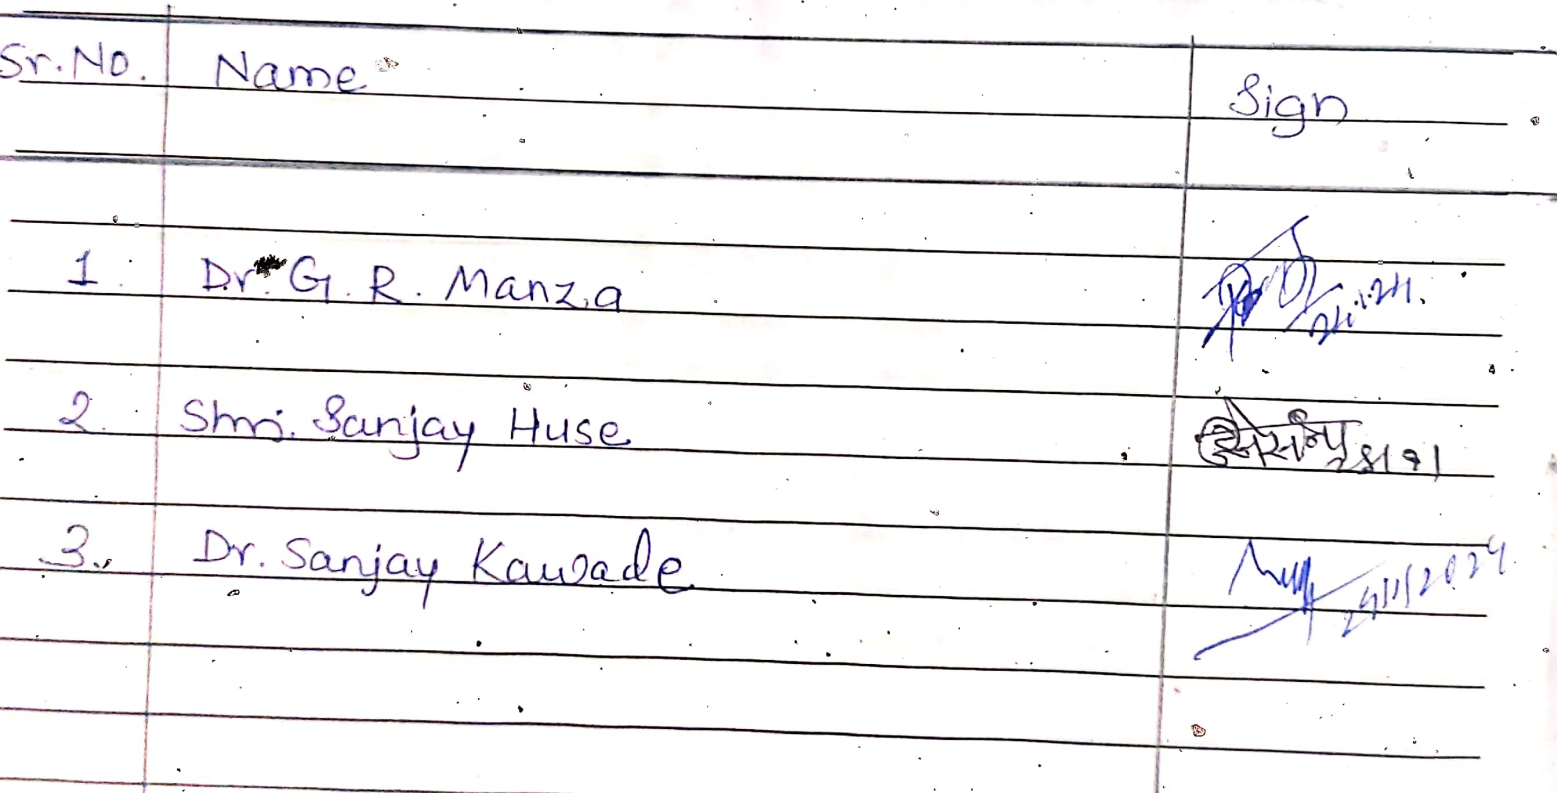 Sr.No. Name Sign
1. Dr. G. R. Manza
2. Shri. Sanjay Huse
3. Dr. Sanjay Kawade